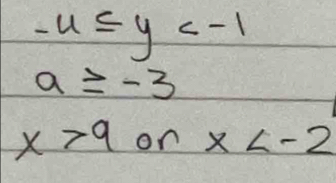 -u ≤ y < -1
a ≥ -3
x > 9 or x < -2